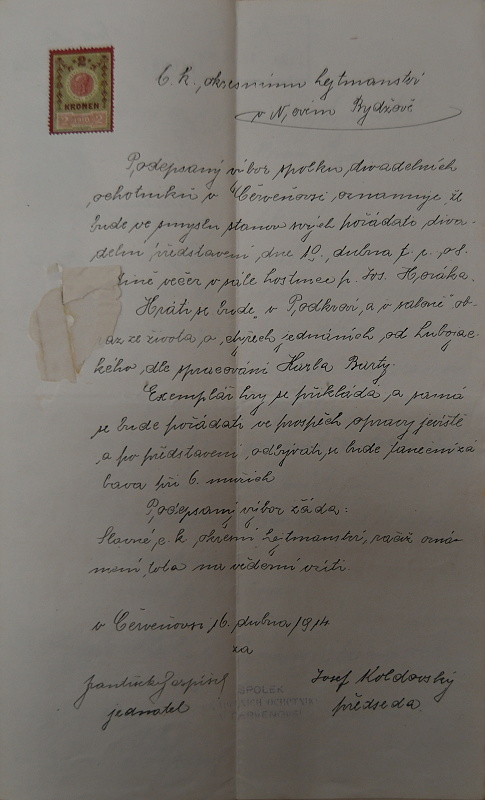 2
KRONEN
1910
C. k. okresnímu hejtmanství
v Novém Bydžově
Podepsaný výbor spolku divadelních
ochotníků v Červeňovsi oznamuje, že
bude ve smyslu stanov svých pořádati diva-
delní představení dne 19. dubna t. r. o 8.
večer v sále hostince p. Jos. Horáka.
Hráti se bude „v Podkroví a v saloně“ ob-
az ze života o čtyřech jednáních od Lubojac-
kého dle spracování Karla Barty.
Exemplář hry se přikládá a samá
se bude pořádati ve prospěch opravy jeviště
a po představení odbývati se bude taneční zá
bava při 6. muzich
Podepsaný výbor žádá:
Slavné c. k. okresní hejtmanství, račiž ozná-
mení toto na vědomí vzíti.
v Červeňovsi 16. dubna 1914
za
František
Josef Koldovský
jednatel
předseda
SPOLEK